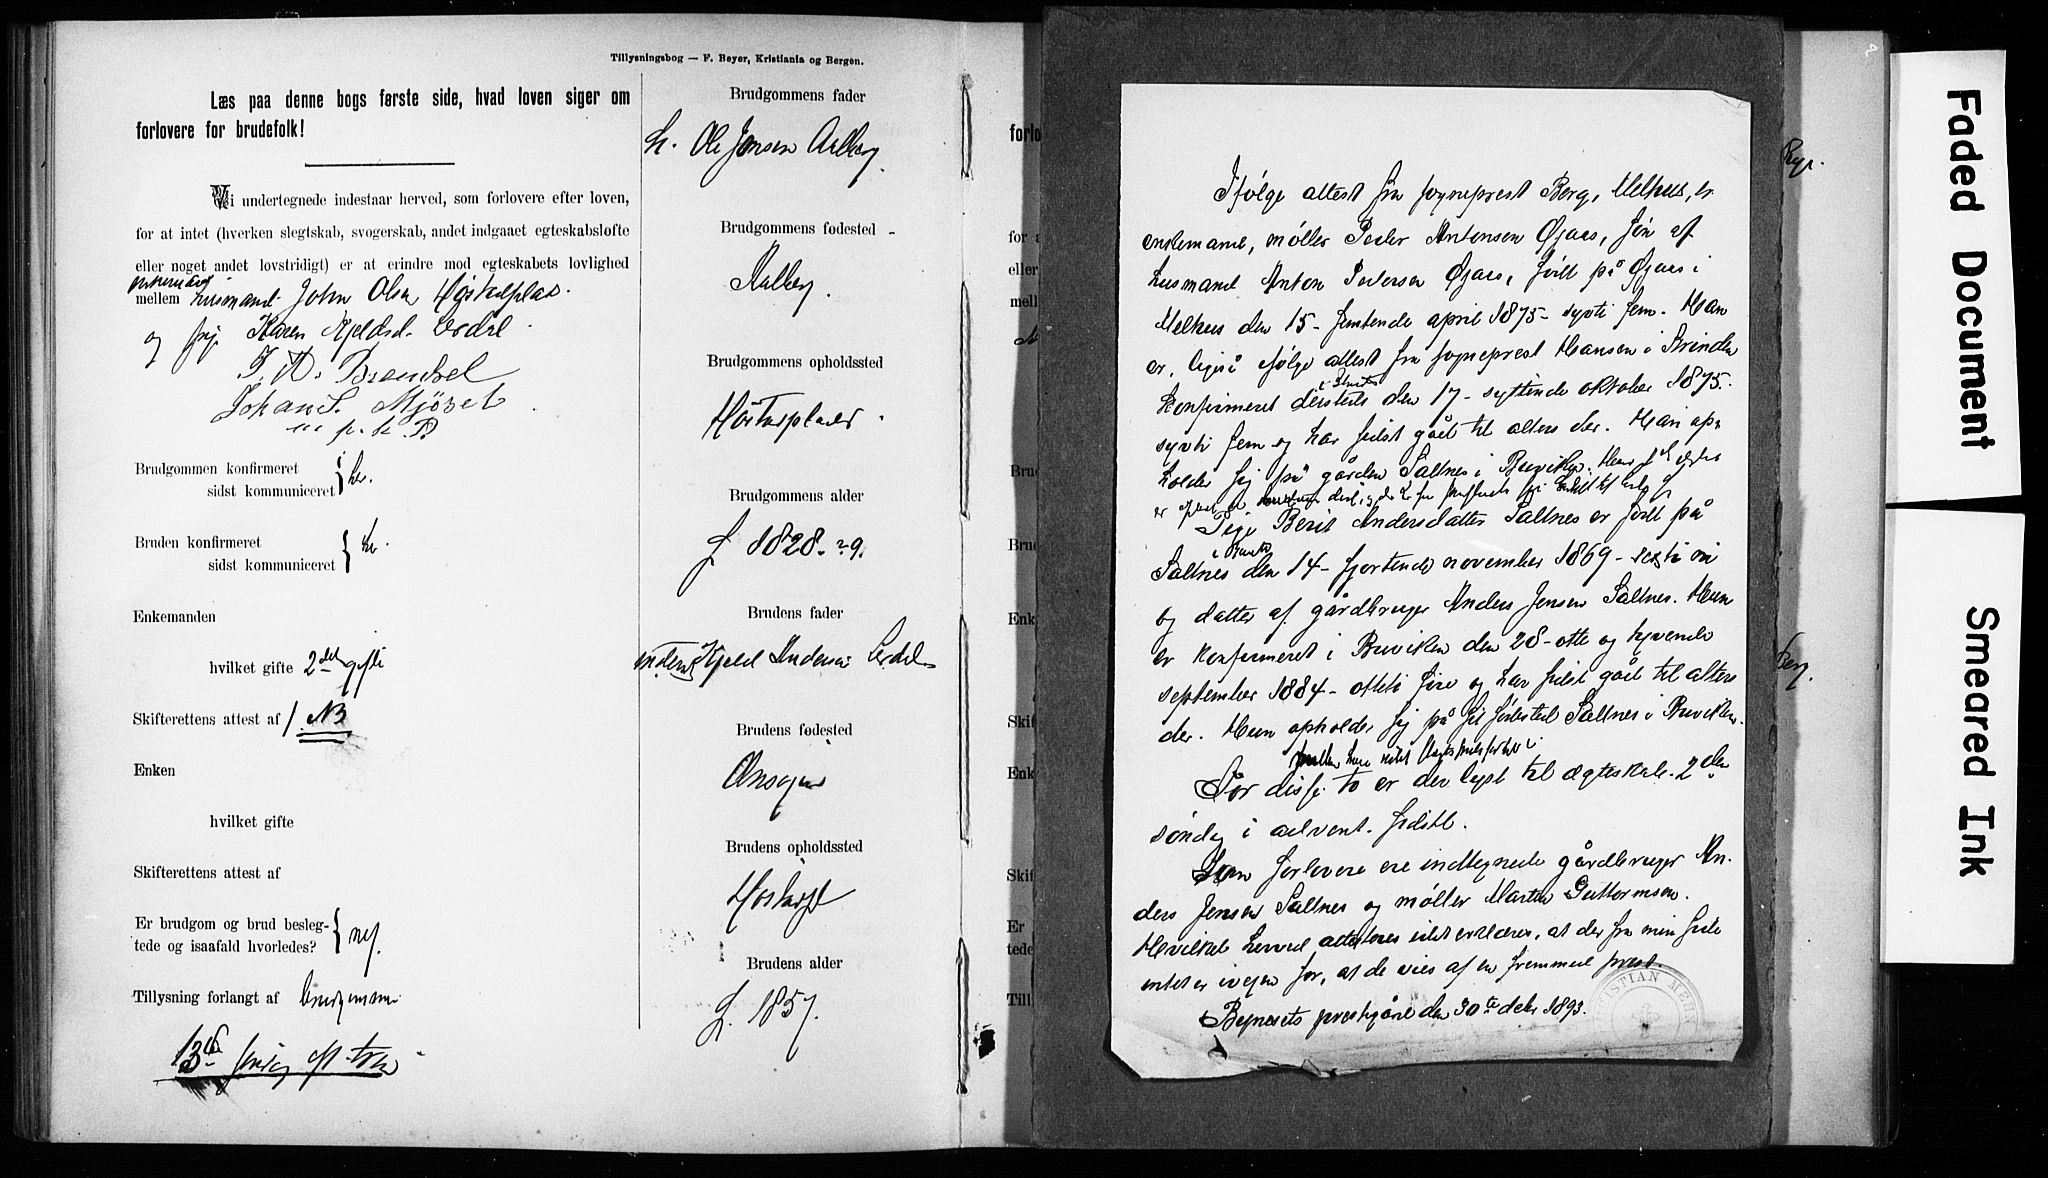 Tillysningsbog — F. Beyer, Kristiania og Bergen.
Læs paa denne bogs første side, hvad loven siger om
forlovere for brudefolk!
Vi undertegnede indestaar herved, som forlovere efter loven,
for at intet (hverken slegtskab, svogerskab, andet indgaaet egteskabsløfte
eller noget andet lovstridigt) er at erindre mod egteskabets lovlighed
mellem husmand John Olsen
og pige Karen Kjeldsd.
Johan S. Mjöset
m. p. h. P
Brudgommen konfirmeret
sidst kommuniceret } her.
Bruden konfirmeret
sidst kommuniceret } her.
Enkemanden
hvilket gifte 2det gifte
Skifterettens attest af /. NB
Enken
hvilket gifte
Skifterettens attest af
Er brudgom og brud besleg-
tede og isaafald hvorledes? } nej.
Tillysning forlangt af brudgommen
13de søndag eft. trin
Brudgommens fader
h. Ole Jonsen Aalberg
Brudgommens fødested
Aalberg
Brudgommens opholdssted
Brudgommens alder
f. 1828. 29.
Brudens fader
Kjeld Andersen
Brudens fødested
Brudens opholdssted
Brudens alder
f. 1857.
forlo
for a
eller
mell
Brud
Brud
Enk
Skif
Enk
Skif
Er
tede
Till
Ifølge attest fra sogneprest Berg, Melhus, er
enkemand, møller Peder Antonsen Øjaas, søn af
husmand Anton Pedersen Øjaas, født på Øjaas i
Melhus den 15- femtende april 1875- sytti fem. Han
er, ligeså ifølge attest fra sogneprest Hansen i Strinden
konfirmeret dersteds den 17- syttende oktober 1875-
sytti fem og har sidst gået til alters der. Han op-
holder sig på gården Saltnes i Buviken.
Pige Berit Andersdatter Saltnes er født på
Saltnes i Buviken den 14- fjortende november 1869- sexti ni
og datter af gårdbruger Anders Jensen Saltnes. Hun
er konfirmeret i Buviken den 28- otte og tyvende
september 1884- otteti fire og har sidst gået til alters
der. Hun opholder sig på sit fødested Saltnes i Buviken.
For disse to er der lyst til ægteskab 2den
søndag i advent. sidstl.
Som forlovere ere indtegnede gårdbruger An-
ders Jensen Saltnes og møller Martin Guttormsen.
Hvilket herved attesteres idet erklæres, at der fra min side
intet er ivejen for, at de vies af en fremmed prest.
Bynesets prestegård den 30te decbr 1893.
Berg.
Faded Document
Smeared Ink